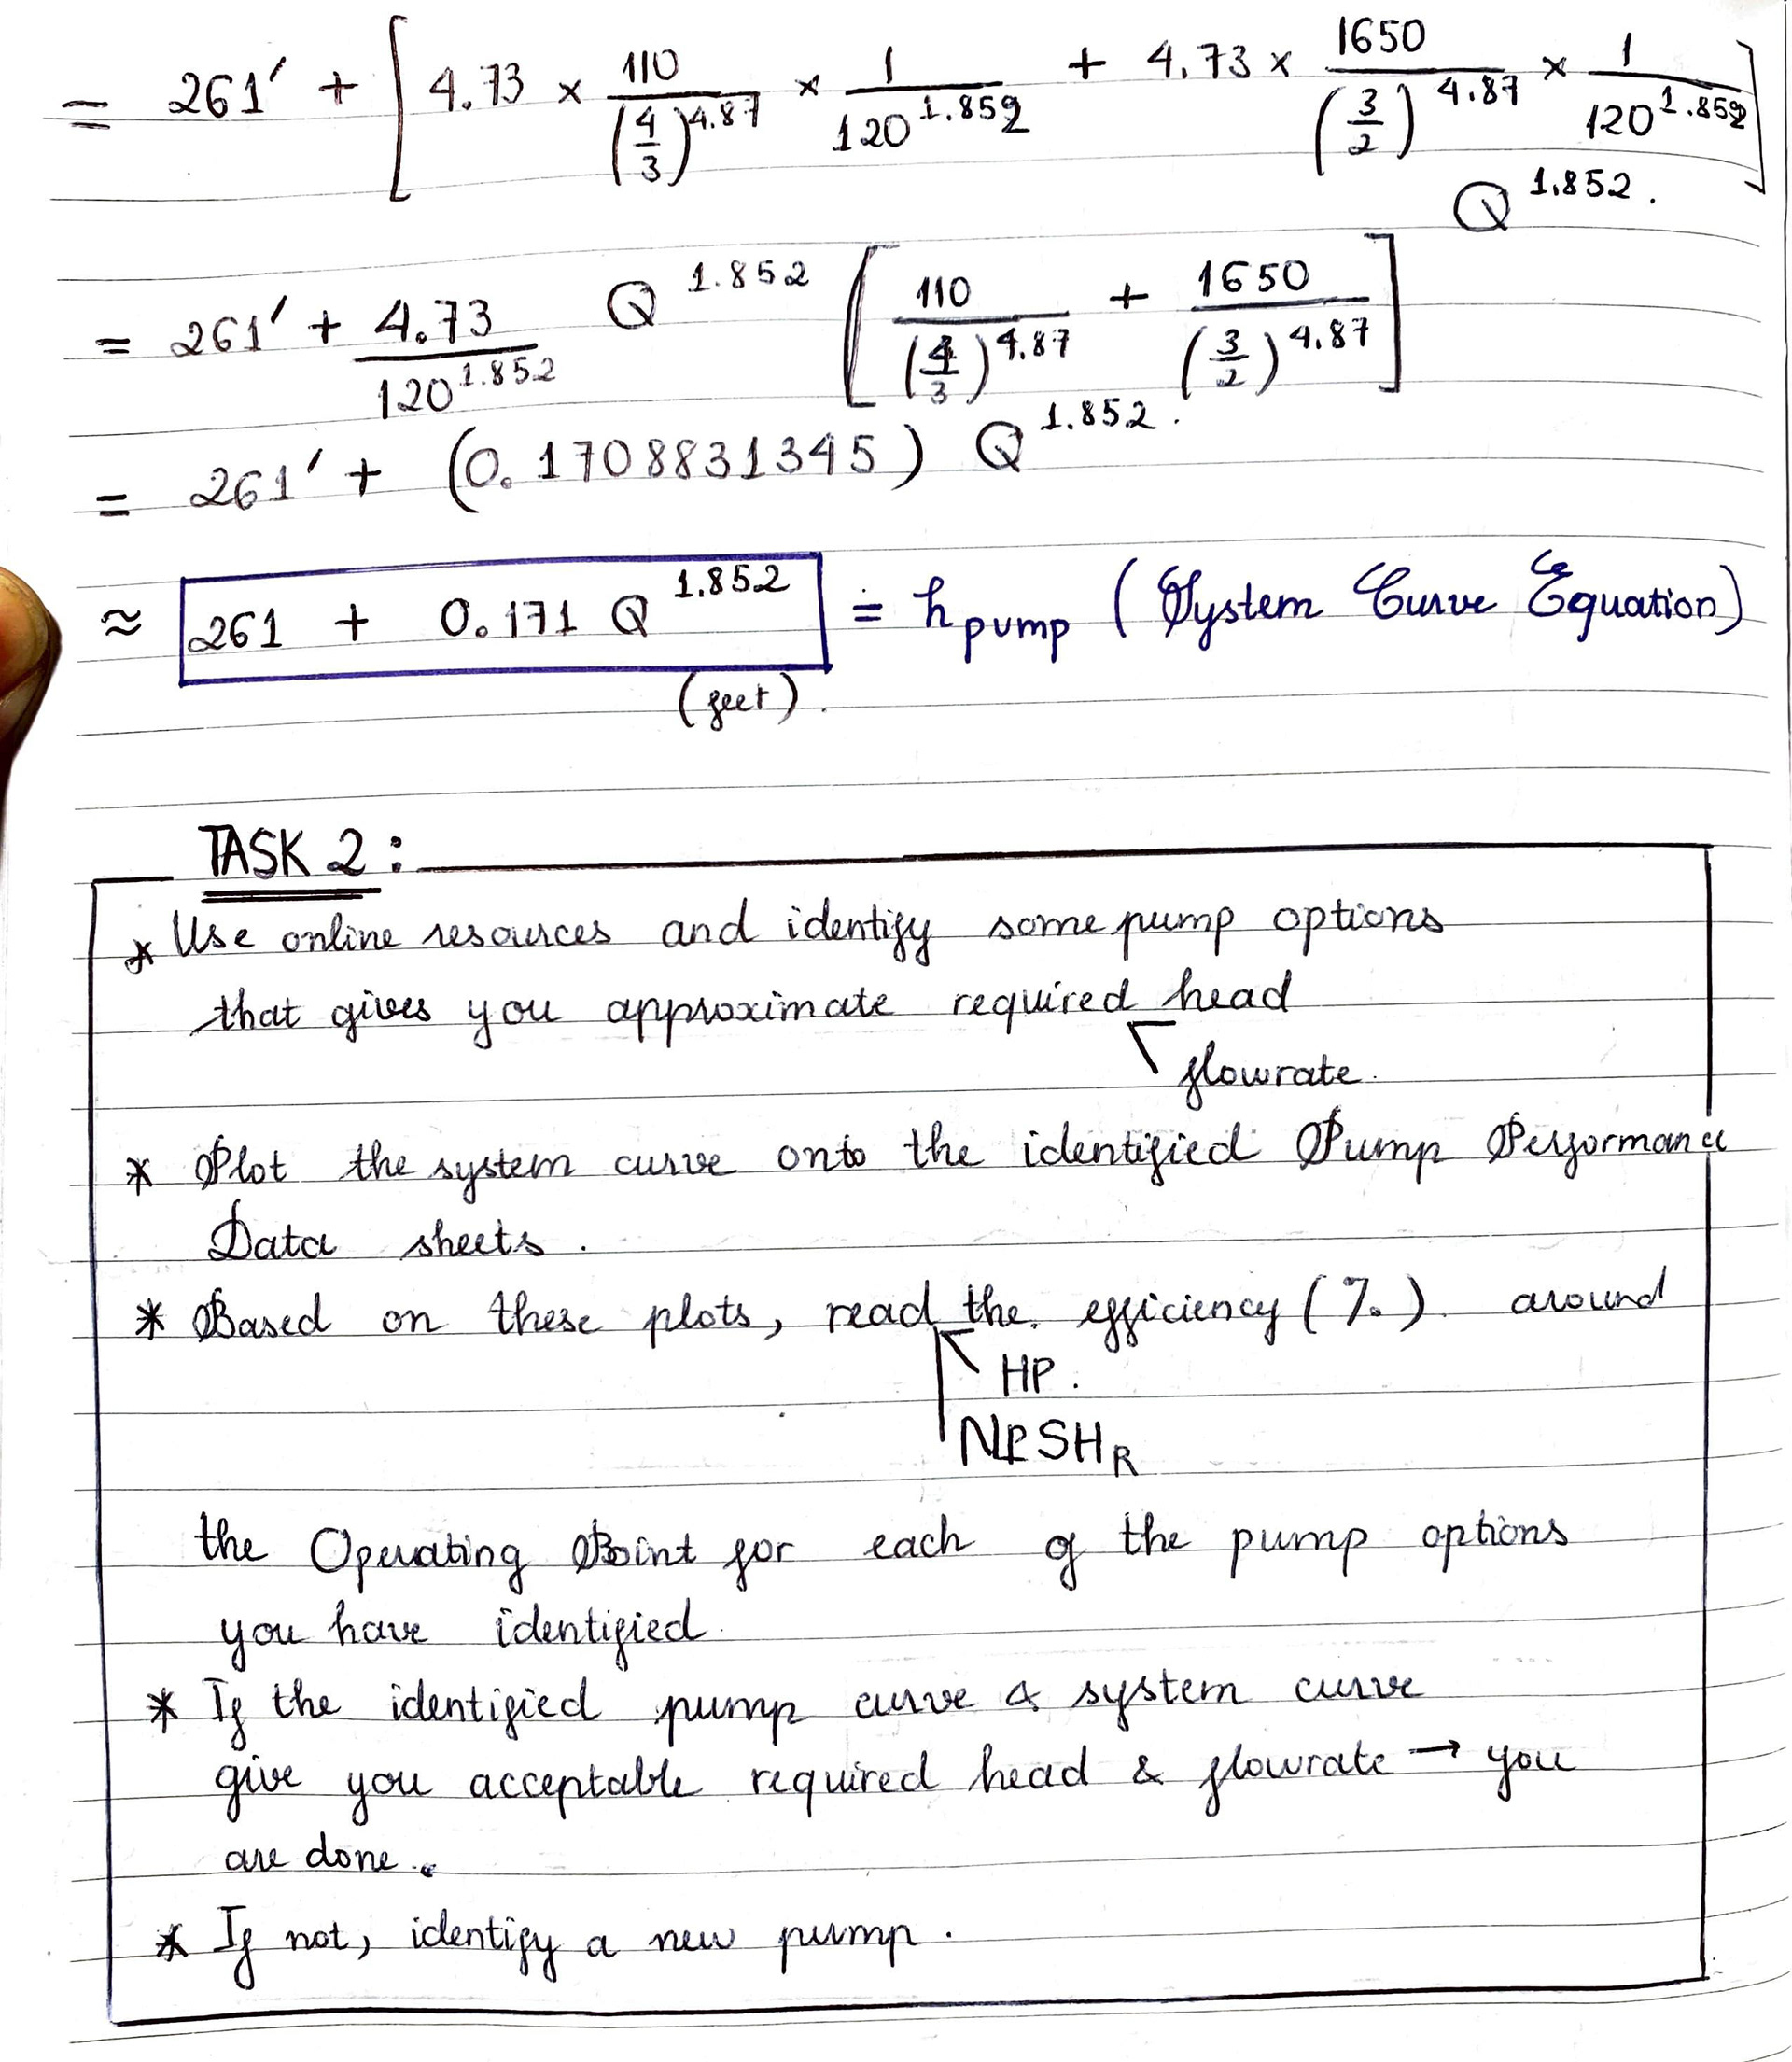 = 261' + [ 4.73 × 110/(4/3)^4.87 × 1/120^1.852 + 4.73 × 1650/(3/2)^4.87 × 1/120^1.852 ]
Q^1.852.
= 261' + 4.73/120^1.852 Q^1.852 [ 110/(4/3)^4.87 + 1650/(3/2)^4.87 ]
= 261' + (0.1708831345) Q^1.852.
≈ 261 + 0.171 Q^1.852 = h pump (System Curve Equation)
(feet).
TASK 2 :
* Use online resources and identify some pump options
that gives you approximate required head
flowrate.
* Plot the system curve onto the identified Pump Performance
Data sheets.
* Based on these plots, read the efficiency (%). around
HP.
NPSH_R
the Operating Point for each of the pump options
you have identified.
* If the identified pump curve & system curve
give you acceptable required head & flowrate → you
are done.
* If not, identify a new pump.